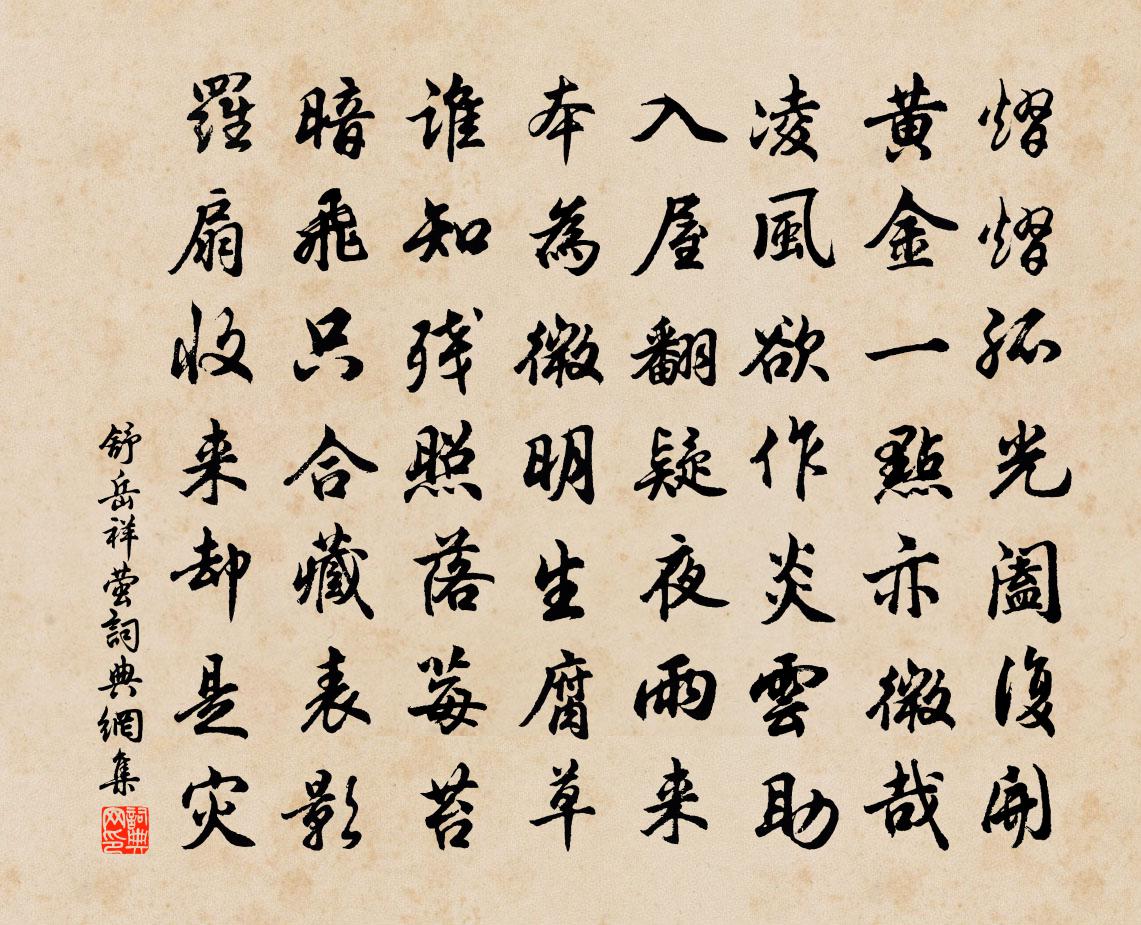 熠熠孤光阖復開
黄金一點亦微哉
凌風欲作炎雲助
入屋翻疑夜雨来
本為微明生腐草
誰知残照落莓苔
暗飛只合藏表影
羅扇收来却是灾
舒岳祥 萤 詞典網集
詞典网印